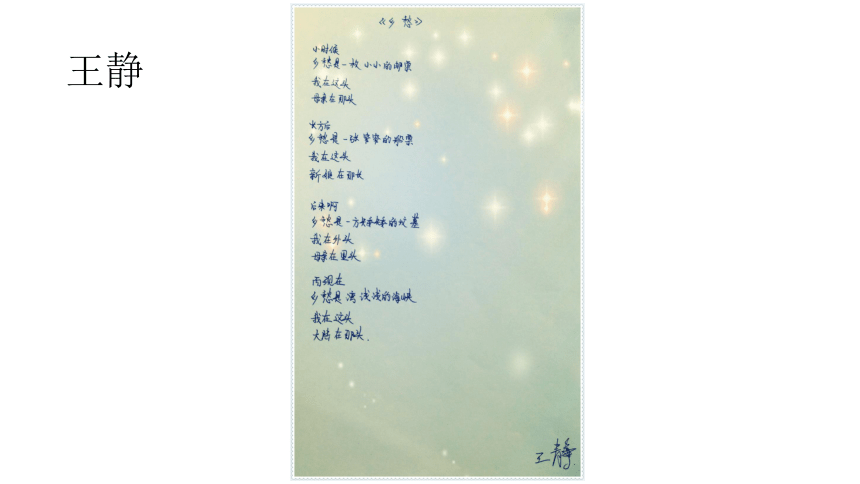 王静
《乡愁》
小时候
乡愁是一枚小小的邮票
我在这头
母亲在那头
长大后
乡愁是一张窄窄的船票
我在这头
新娘在那头
后来啊
乡愁是一方矮矮的坟墓
我在外头
母亲在里头
而现在
乡愁是湾浅浅的海峡
我在这头
大陆在那头.
王静